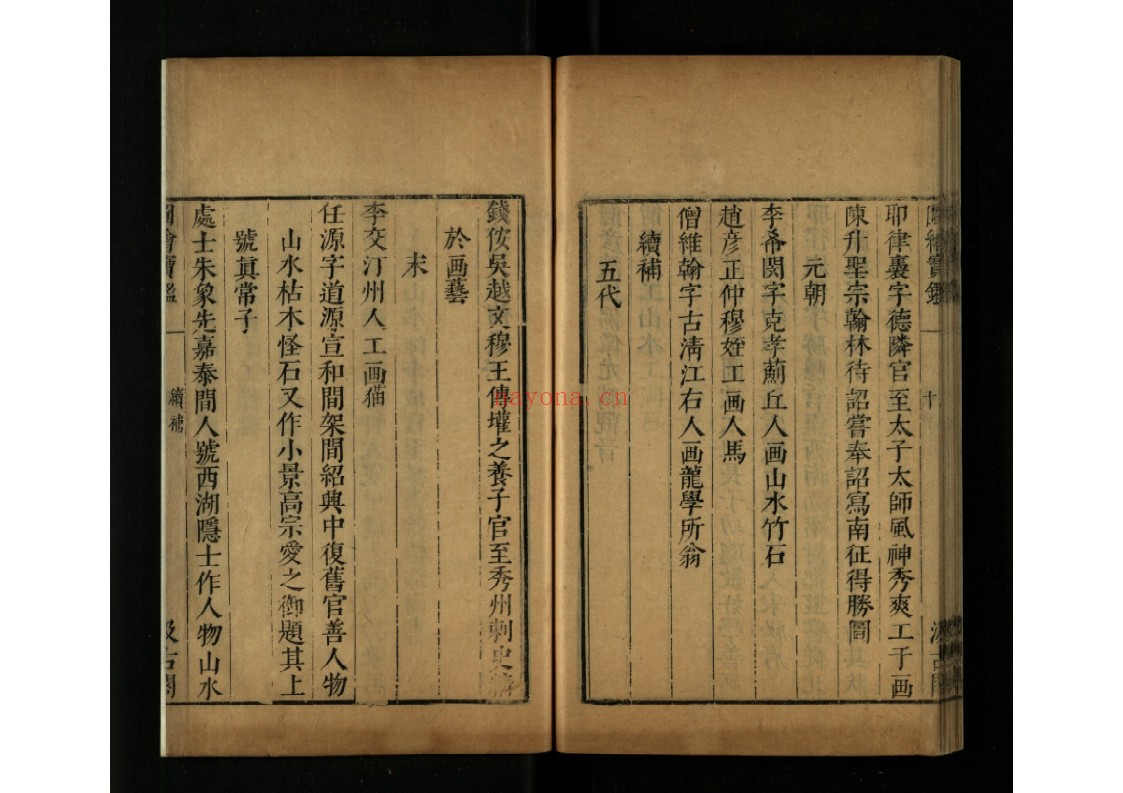 圖繪寶鑑
十
汲古閣
耶律褭字德隣官至太子太師風神秀爽工于画
陳升聖宗翰林待詔嘗奉詔寫南征得勝圖
元朝
李希閔字克孝薊丘人画山水竹石
趙彦正仲穆姪工画人馬
僧維翰字古淸江右人画龍學所翁
續補
五代
錢侒吳越文穆王傳瓘之養子官至秀州刺史精
於画藝
末
李交汀州人工画猫
任源字道源宣和間架閣紹興中復舊官善人物
山水枯木怪石又作小景高宗愛之御題其上
號眞常子
處士朱象先嘉泰間人號西湖隱士作人物山水
圖繪寶鑑
續補
汲古閣
nayona.cn